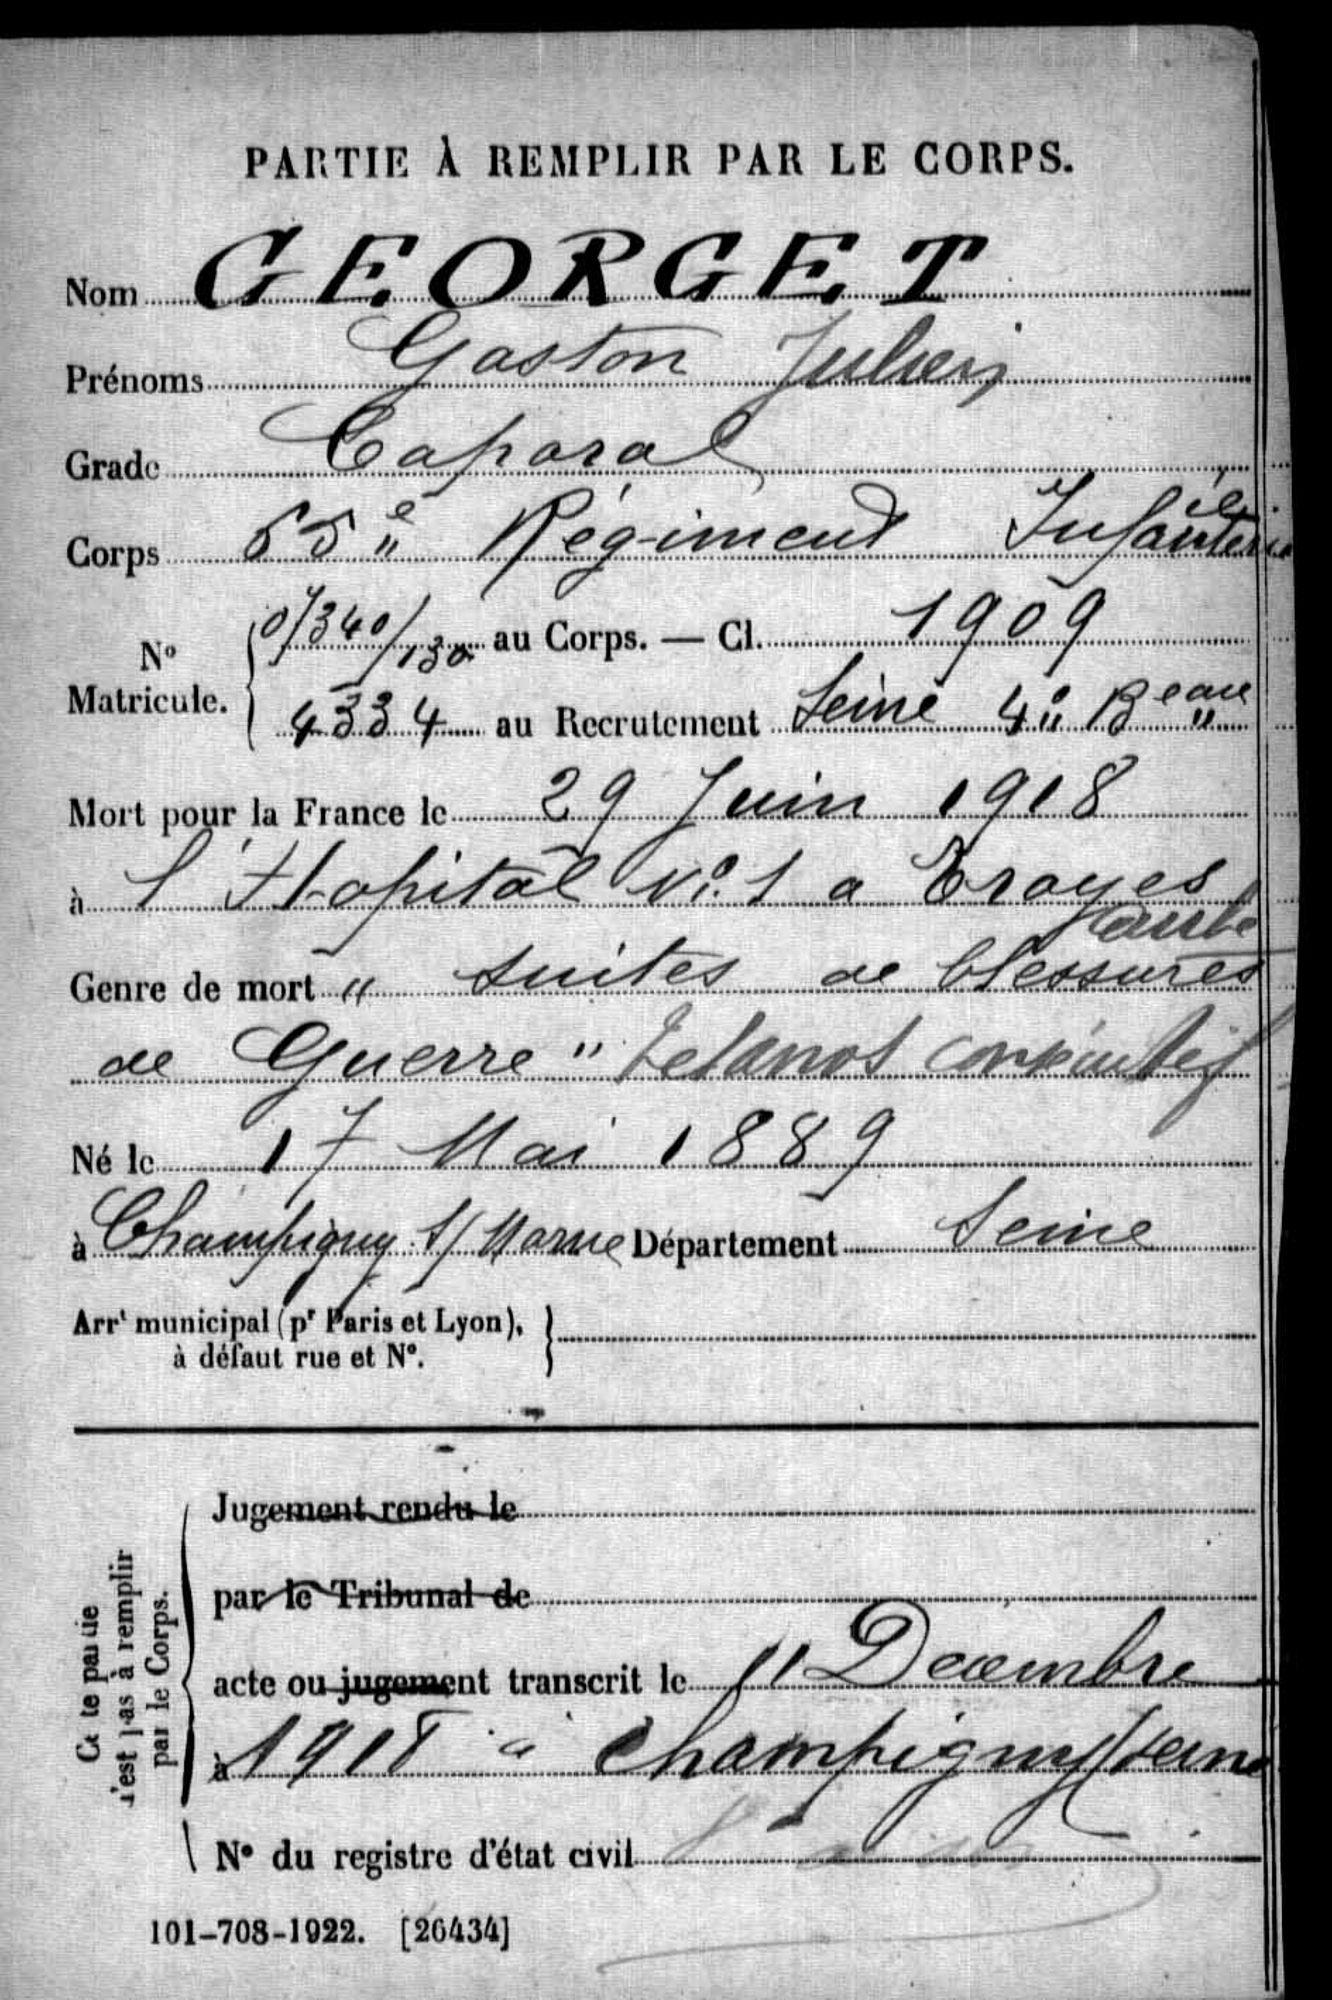 PARTIE À REMPLIR PAR LE CORPS.
Nom GEORGET
Prénoms Gaston Julien
Grade Caporal
Corps 55e Régiment Infanterie
N° Matricule. 0/340/130 au Corps. — Cl. 1909
4334 au Recrutement Seine 4e Beau
Mort pour la France le 29 Juin 1918
à l'Hopital N° 1 a Troyes
Aube
Genre de mort " suites de blessures
de Guerre " tetanos
Né le 17 Mai 1889
à Champigny S/ Marne Département Seine
Arrt municipal (pr Paris et Lyon),
à défaut rue et N°.
Cette partie
n'est pas à remplir
par le Corps.
Jugement rendu le
par le Tribunal de
acte ou jugement transcrit le 11 Decembre
à 1918 à Champigny (Seine
N° du registre d'état civil
101-708-1922. [26434]